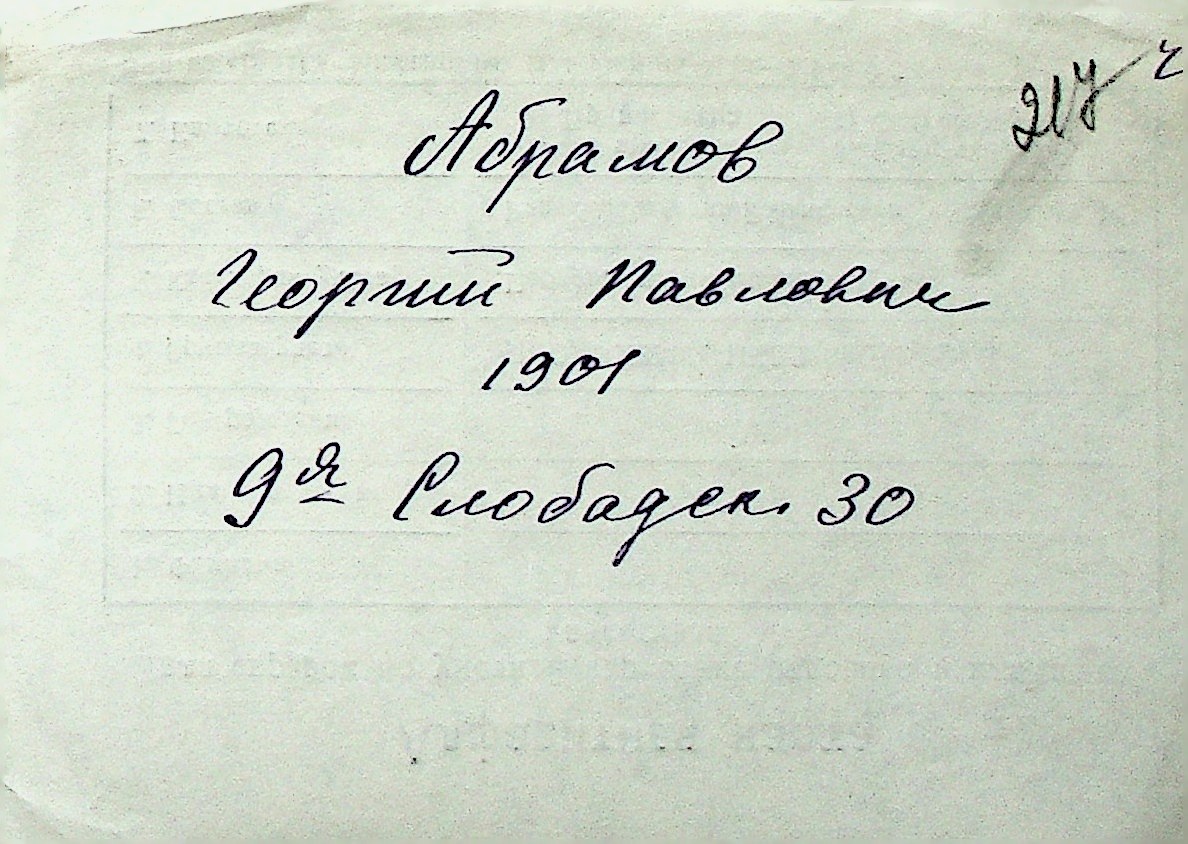 217 ч
Абрамов
Георгий Павлович
1901
9я Слободск. 30